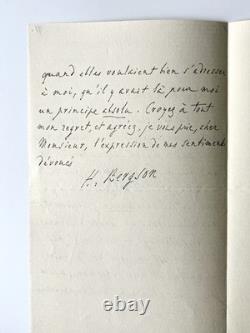 quand elles voulaient bien s'adresser
à moi, qu'il y avait là, pour moi
un principe absolu. Croyez à tout
mon regret, et agréez, je vous prie, cher
Monsieur, l'expression de mes sentiments
dévoués
H. Bergson
ebay